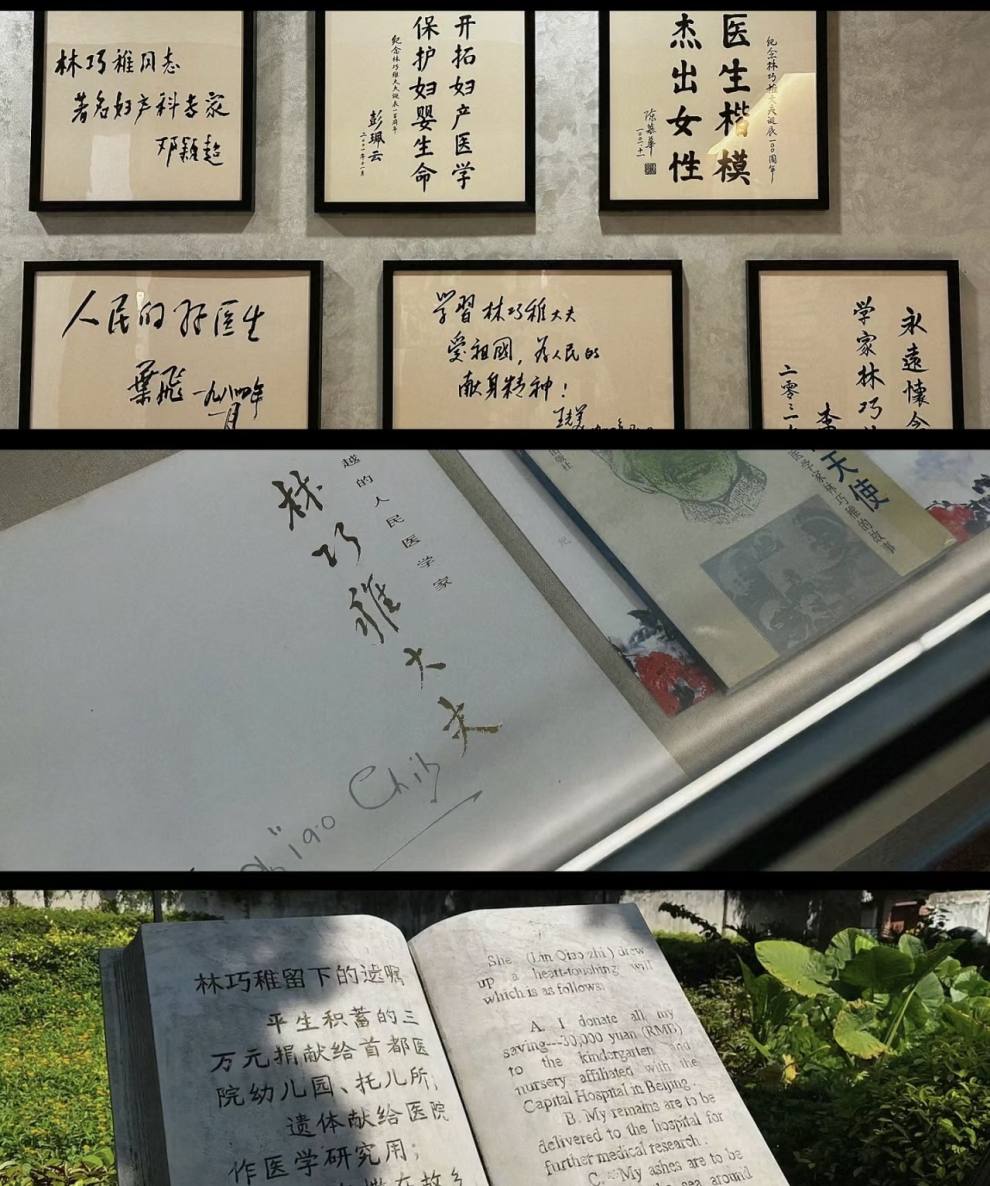 林巧稚同志
著名妇产科专家
邓颖超
开拓妇产医学
保护妇婴生命
纪念林巧稚大夫诞辰一百周年
彭珮云
二〇〇一年十一月
纪念林巧稚大夫诞辰一〇〇周年
医生楷模
杰出女性
陈慕华
人民的好医生
葉飛 一九八四年
月
学習林巧稚大夫
爱祖國，为人民的
献身精神！
永遠懷念
学家林巧
二零二一
李
越的人民医学家
林巧稚大夫
Chih
出版社
天使
医学家林巧稚的故事
林巧稚留下的遗嘱
平生积蓄的三
万元捐献给首都医
院幼儿园、托儿所；
遗体献给医院
作医学研究用；
She (Lin Qiao zhi) drew
up a heart-touching will
which is as follows:
A. I donate all my
saving---30,000 yuan (RMB)
to the kindergarten and
nursery affiliated with the
Capital Hospital in Beijing.
B. My remains are to be
delivered to the hospital for
further medical research.
C. My ashes are to be
the sea around